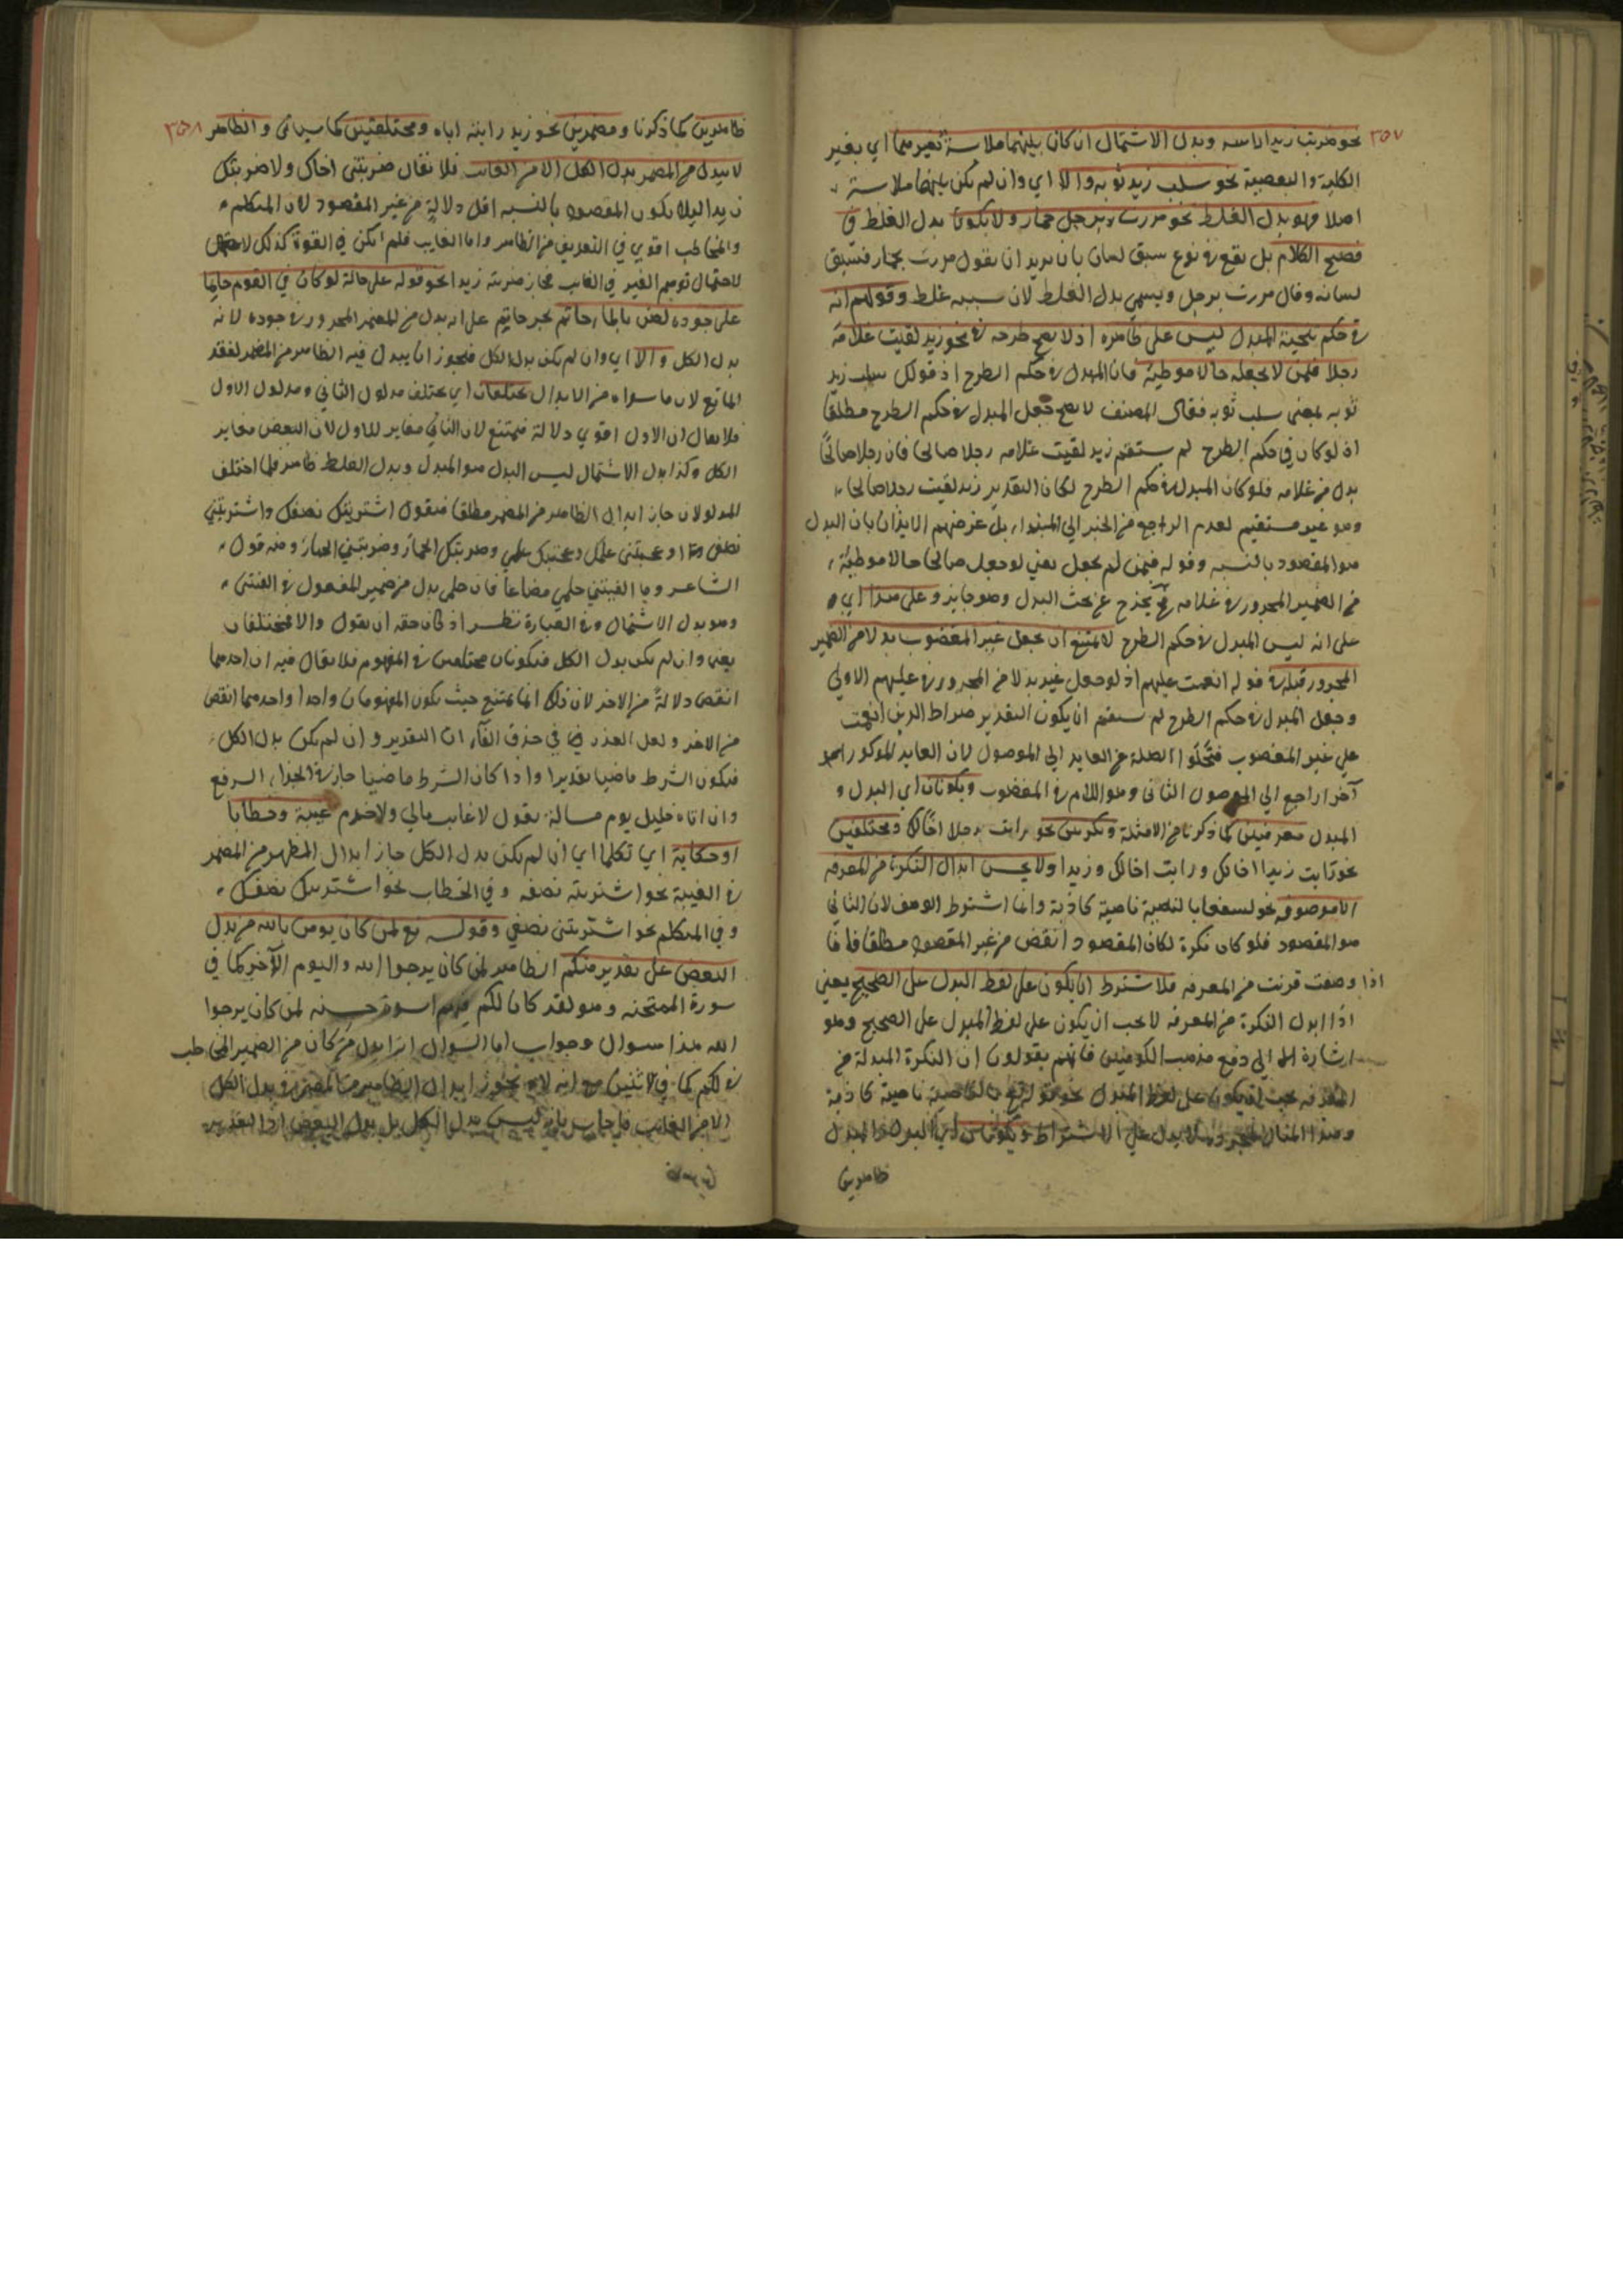 ٣٥٧
نحو ضربت زيدا راسه وبدل الاشتمال ان كان بينهما ملابسة بغيرهما اي بغير
الكلية والبعضية نحو سلب زيد ثوبه والا اي وان لم يكن بينهما ملابسة
اصلا فهو بدل الغلط نحو مررت برجل حمار ولا يكون بدل الغلط في
فصيح الكلام بل يقع في نوع سبق لسان بان يريد ان يقول مررت بحمار فسبق
لسانه وقال مررت برجل ويسمى بدل الغلط لان سببه غلط وقولهم انه
في حكم تنحية المبدل ليس على ظاهره اذ لا يصح طرحه في نحو زيد لقيت غلامه
رجلا فيمن لا يجعله حالا موطئة فان المبدل في حكم الطرح اذ قولك سلب زيد
ثوبه بمعنى سلب ثوبه فقال المصنف لا يصح جعل المبدل في حكم الطرح مطلقا
اذ لو كان في حكم الطرح لم يستقم زيد لقيت غلامه رجلا صالحا فان رجلا صالحا
بدل من غلامه فلو كان المبدل في حكم الطرح لكان التقدير زيد لقيت رجلا صالحا
وهو غير مستقيم لعدم الراجع من الخبر الي المبتداء بل غرضهم الايذان بان البدل
هو المقصود بالنسبه وقوله فيمن لم يجعل يعني لو جعل صالحا حالا موطئة
من الضمير المجرور في غلامه يخرج عن بحث البدل وهو جايز وعلى هذا اي
على انه ليس المبدل في حكم الطرح لا يمتنع ان يجعل غير المغضوب بدلا من الضمير
المجرور قبله في قوله انعمت عليهم اذ لو جعل غير بدلا من المجرور في عليهم الاولي
وجعل المبدل في حكم الطرح لم يستقم ان يكون التقدير صراط الذين انعمت
علي غير المغضوب فتخلوا الصلة عن العايد الي الموصول لان العايد المذكور
آخرا راجع الي الموصول الثاني وهو اللام في المغضوب ويكونان اي البدل و
المبدل معرفتين كما ذكرنا من الامثلة ونكرتين نحو رايت رجلا اخا لك ومختلفين
نحو رايت زيدا اخا لك ورايت اخا لك وزيدا ولا يحسن ابدال النكرة من المعرفه
الا موصوفه نحو لنسفعا بالناصية ناصية كاذبة وانما اشترط الوصف لان الثاني
هو المقصود فلو كان نكرة لكان المقصود انقص من غير المقصود مطلقا فاما
اذا وصفت قربت من المعرفه فلا يشترط ان يكون على لفظ البدل على الصحيح يعني
اذا ابدل النكرة من المعرفه لا يجب ان يكون على لفظ المبدل على الصحيح وهو
اشارة الي دفع مذهب الكوفيين فانهم يقولون ان النكرة المبدلة من
المعرفه يجب ان يكون على لفظ المبدل نحو قوله بالناصية ناصية كاذبة
وهذا المثال لا يدل علي الاشتراط ويكونان اي البدل والمبدل
ظاهرين
٣٥٨
ظاهرين كما ذكرنا ومضمرين نحو زيد رايته اياه ومختلفين كما سياتي والظاهر
لا يبدل من المضمر بدل الكل الا من الغايب فلا يقال ضربتني اخاك ولا ضربتك
زيدا ليلا يكون المقصود بالنسبه اقل دلالة من غير المقصود لان المتكلم
والمخاطب اقوي في التعريف من الظاهر واما الغايب فلم يكن في القوة كذلك
لاحتمال توهم الغير في الغايب فجاز ضربته زيدا نحو قوله على حالة لو كان في القوم حاتما
على جوده لضن بالماء حاتم بجر حاتم على انه بدل من المضمر المجرور في جوده لانه
بدل الكل والا اي وان لم يكن بدل الكل فيجوز ان يبدل فيه الظاهر من المضمر لفقد
المانع لان ما سواه من الابدال مختلفان اي يختلف مدلول الثاني ومدلول الاول
فلا يقال ان الاول اقوي دلالة فيمتنع لان الثاني مغاير للاول لان البعض مغاير
الكل وكذا بدل الاشتمال ليس البدل هو المبدل وبدل الغلط ظاهر فلما اختلف
المدلولان جاز ابدال الظاهر من المضمر مطلقا فيقول اشتريتك نصفك واشتريتني
نصفي واعجبتني علمك واعجبتك علمي وضربتك الحمار وضربتني الحمار ومنه قول
الشاعر وما الفيتني حلمي مضاعا فان حلمي بدل من ضمير المفعول في الفيتني
وهو بدل الاشتمال وفي العبارة نظر اذ كان حقه ان يقول والا فمختلفان
يعني وان لم يكن بدل الكل فيكونان مختلفين في المفهوم فلا يقال فيه ان احدهما
انقص دلالة من الاخر لان ذلك انما يمتنع حيث يكون المفهومان واحدا واحدهما انقص
من الاخر ولعل العذر في حذف الفاء ان التقدير وان لم يكن بدل الكل
فيكون الشرط ماضيا تقديرا واذا كان الشرط ماضيا جاز في الجزاء الرفع
وان اتاه خليل يوم مسالة يقول لا غايب مالي ولا حرم غيبة وخطابا
او حكاية اي تكلما اي ان لم يكن بدل الكل جاز ابدال المظهر من المضمر
في الغيبة نحو اشتريته نصفه وفي الخطاب نحو اشتريتك نصفك
وفي المتكلم نحو اشتريتني نصفي وقوله تع لمن كان يومن بالله من بدل
البعض على تقدير منكم الظاهر لمن كان يرجوا الله واليوم الآخر كما في
سورة الممتحنه وهو لقد كان لكم فيهم اسوة حسنه لمن كان يرجوا
الله هذا سوال وجواب اما السوال انه ابدل من كان من الضمير المخاطب
في لكم كما في الاثنين مع انه لا يجوز ابدال الظاهر من المضمر في بدل الكل
الا من الغايب فاجاب بانه ليس بدل الكل بل بدل البعض اذ التقدير